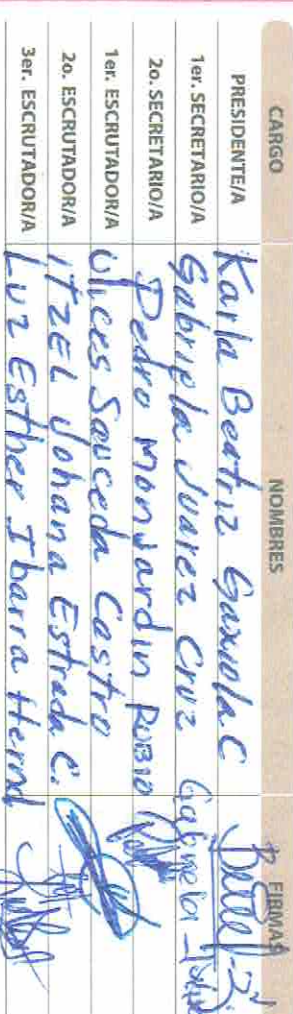 CARGO NOMBRES FIRMAS
PRESIDENTE/A Karla Beatriz Gaxiola C
1er. SECRETARIO/A Gabriela Juarez Cruz Gabriela
2o. SECRETARIO/A Pedro Monjardin RUBIO
1er. ESCRUTADOR/A Ulices Sauceda Castro
2o. ESCRUTADOR/A ITZEL Johana Estrada C.
3er. ESCRUTADOR/A Luz Esther Ibarra Hernd